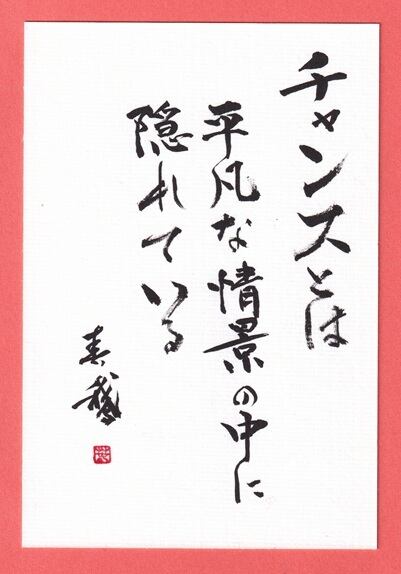 チャンスとは
平凡な情景の中に
隠れている